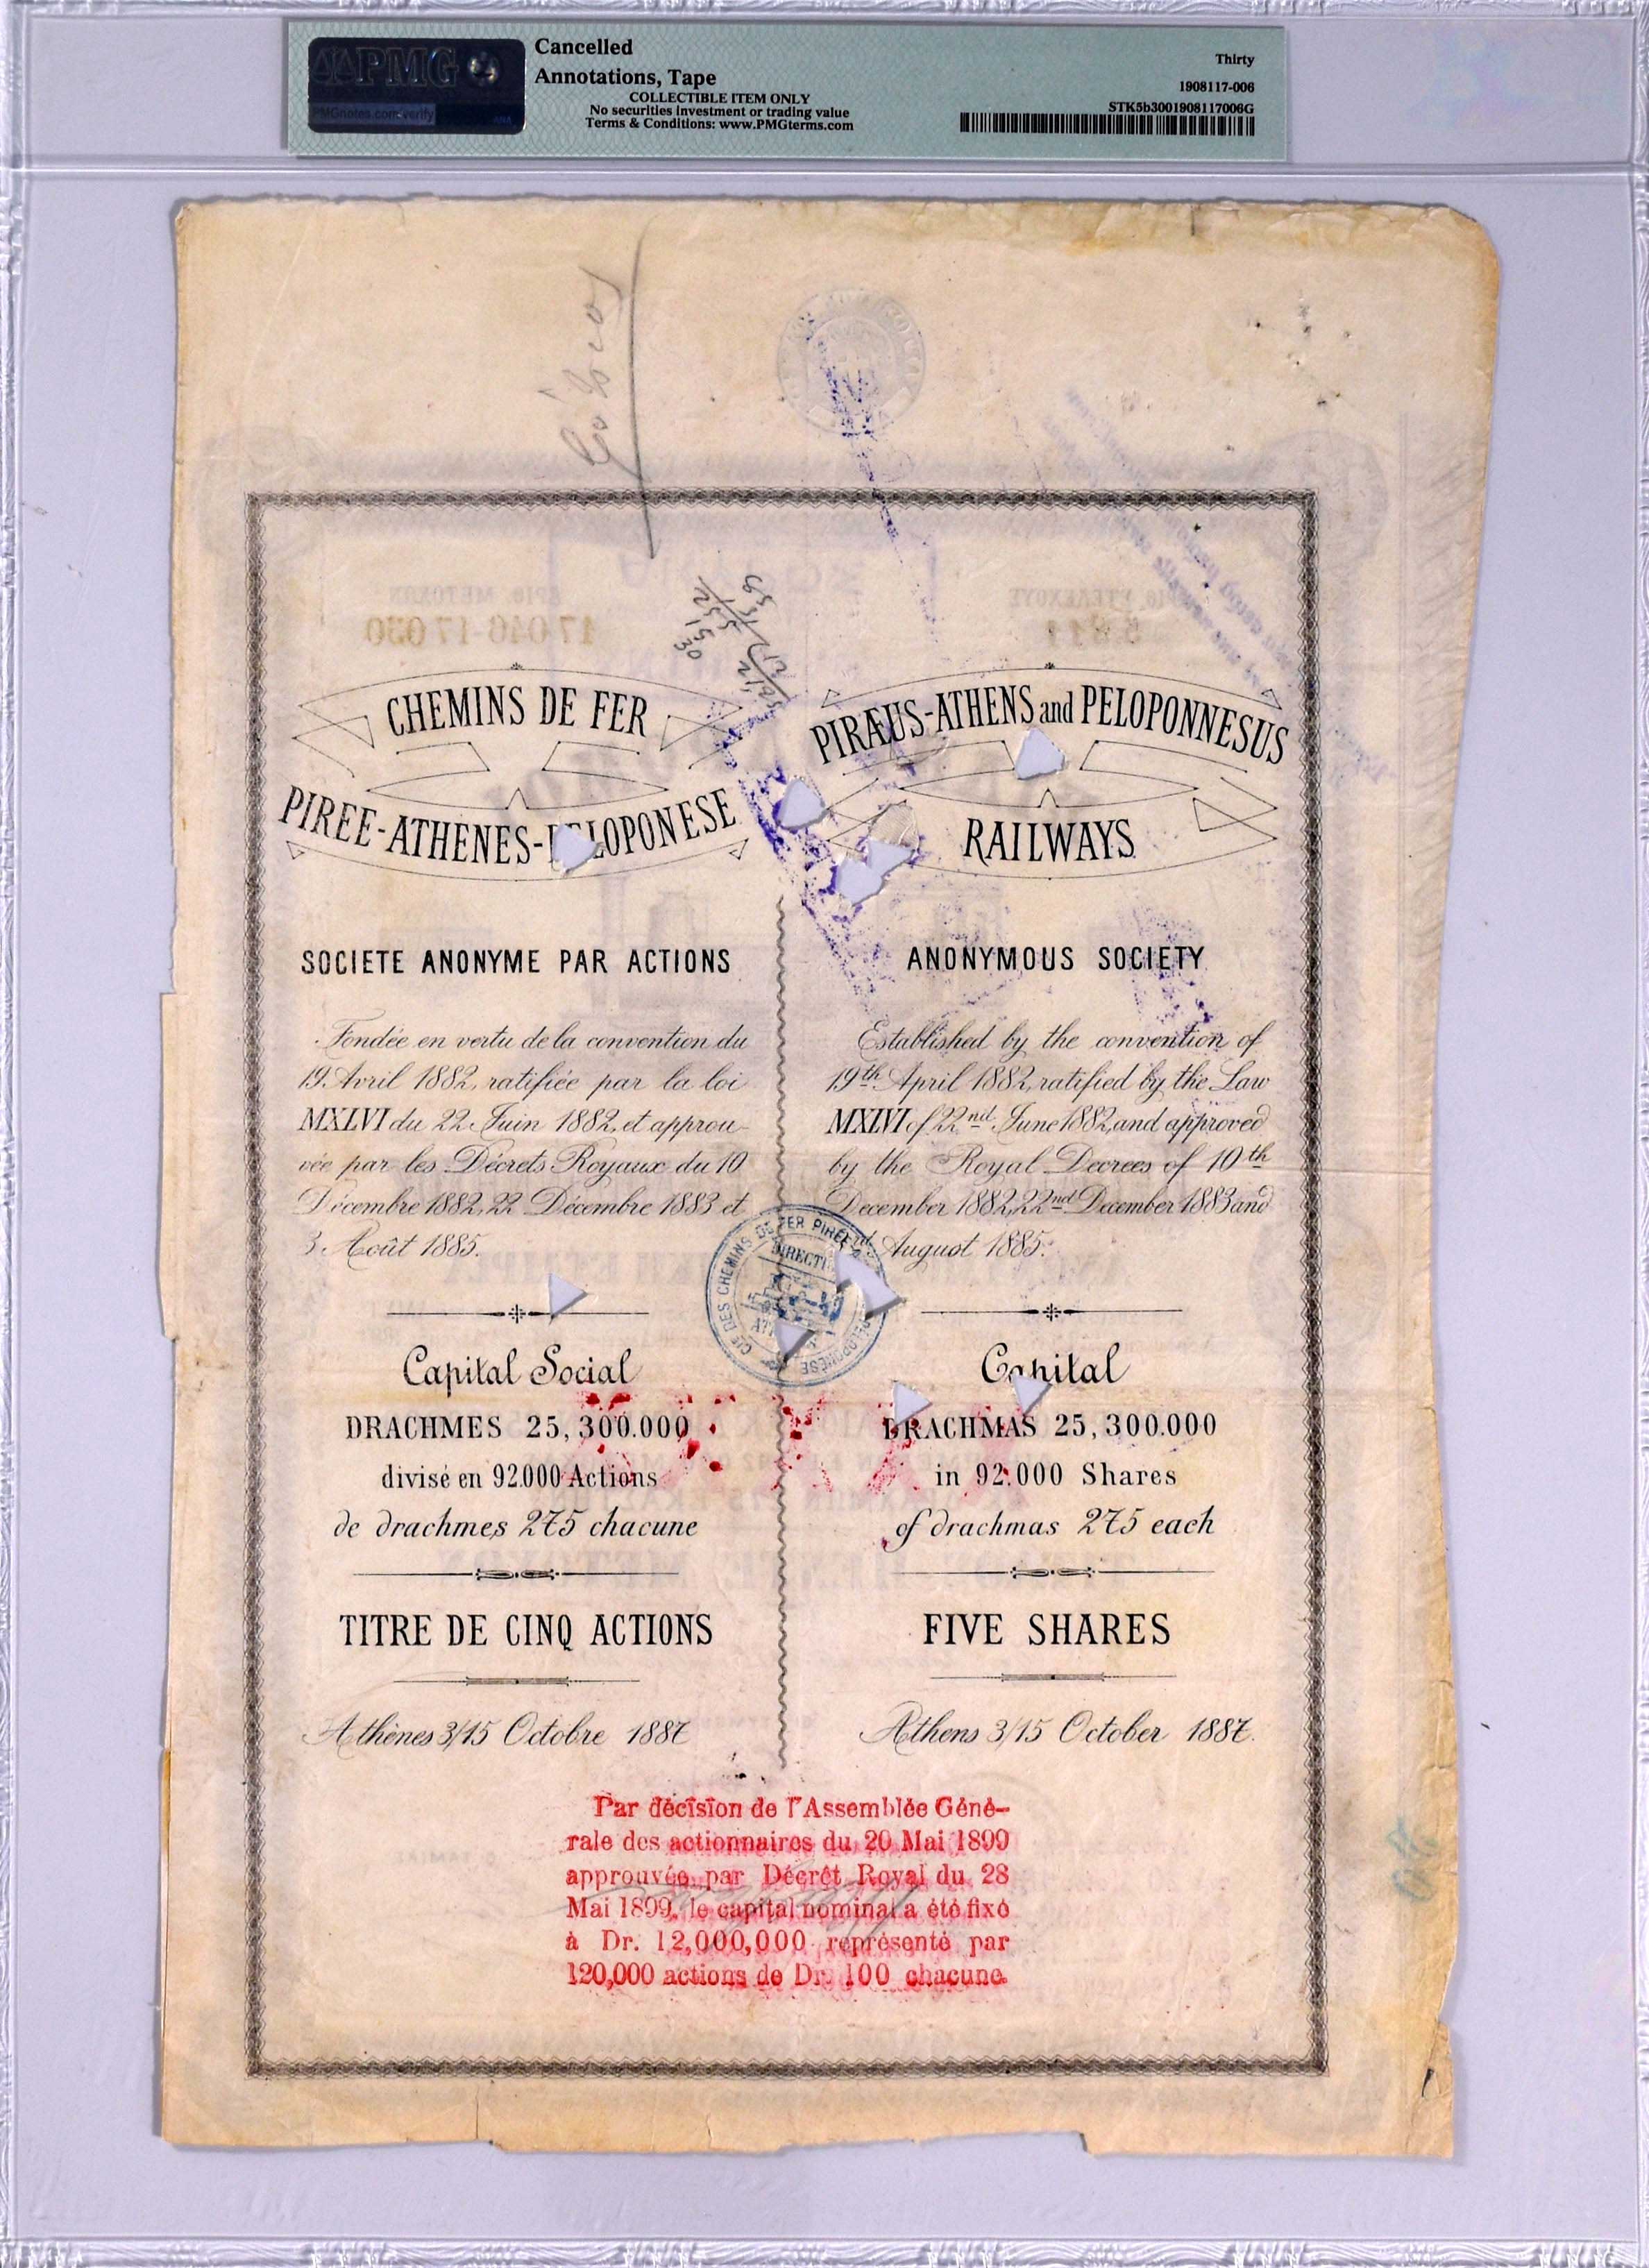 PMG
PMGnotes.com/verify
Cancelled
Annotations, Tape
COLLECTIBLE ITEM ONLY
No securities investment or trading value
Terms & Conditions: www.PMGterms.com
Thirty
1908117-006
STK5b3001908117006G
ΑΡΙΘ. ΜΕΤΟΧΩΝ
17 046-17 050
CHEMINS DE FER
PIREE-ATHENES-PELOPONESE
SOCIETE ANONYME PAR ACTIONS
Fondée en vertu de la convention du
19. Avril 1882, ratifiée par la loi
MXLVI du 22 Juin 1882, et approu-
vée par les Décrets Royaux du 10
Décembre 1882, 22 Décembre 1883 et
3 Août 1885.
Capital Social
DRACHMES 25,300.000
divisé en 92.000 Actions
de drachmes 275 chacune
TITRE DE CINQ ACTIONS
Athènes 3/15 Octobre 1887
PIRÆUS-ATHENS and PELOPONNESUS
RAILWAYS
ANONYMOUS SOCIETY
Established by the convention of
19th April 1882, ratified by the Law
MXLVI of 22nd June 1882, and approved
by the Royal Decrees of 10th
December 1882, 22nd December 1883 and
August 1885.
Capital
DRACHMAS 25,300.000
in 92.000 Shares
of drachmas 275 each
FIVE SHARES
Athens 3/15 October 1887.
CIE DES CHEMINS DE FER PIREE PELOPONESE
Par décision de l'Assemblée Géné-
rale des actionnaires du 20 Mai 1899
approuvée par Décrêt Royal du 28
Mai 1899, le capital nominal a été fixé
à Dr. 12,000,000 représenté par
120,000 actions de Dr. 100 chacune.